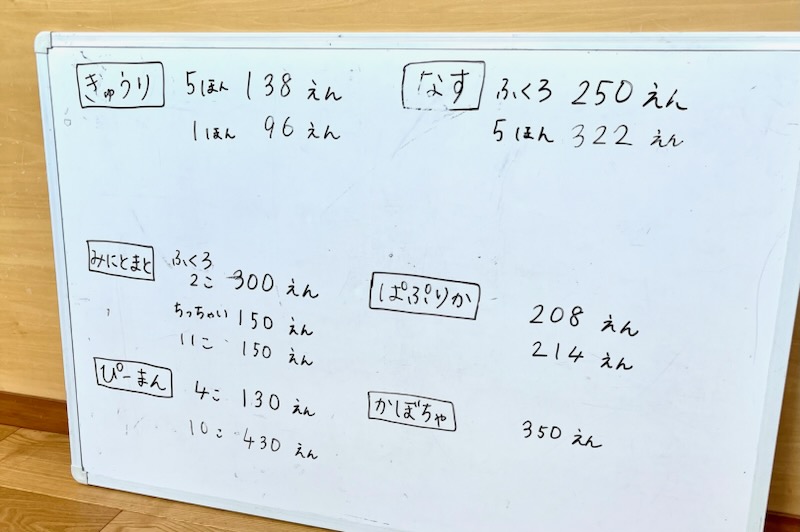 きゅうり 5ほん 138えん
1ほん 96えん
なす ふくろ 250えん
5ほん 322えん
みにとまと ふくろ
2こ 300えん
ちっちゃい 150えん
11こ 150えん
ぱぷりか 208えん
214えん
ぴーまん 4こ 130えん
10こ 430えん
かぼちゃ 350えん